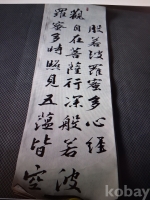 般若波羅蜜多心経
観自在菩薩行深般若波
羅蜜多時照見五蘊皆空
kobay